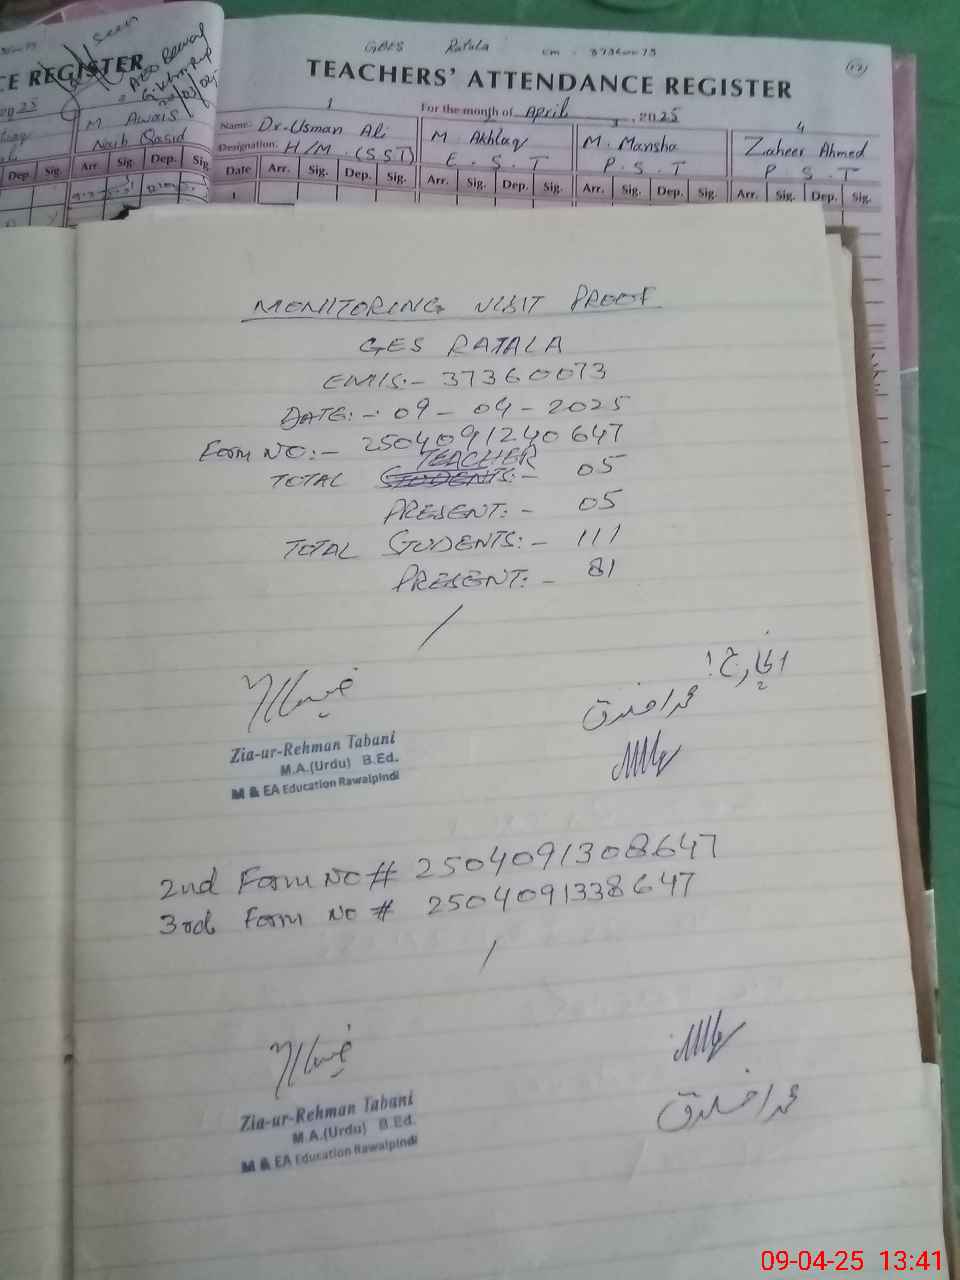 GBES Ratala
TEACHERS' ATTENDANCE REGISTER
CE REGISTER
seen
For the month of April, 2025
1
3
4
Name: Dr-Usman Ali
M. Akhlaq
M. Mansha
Zaheer Ahmed
M. Awais
Naib Qasid
Designation. H/M. (SST)
E.S.T
P.S.T
P.S.T
Dep. Sig. Arr. Sig. Dep. Sig.
Date Arr. Sig. Dep. Sig. Arr. Sig. Dep. Sig. Arr. Sig. Dep. Sig. Arr. Sig. Dep. Sig.
1
MONITORING VISIT PROOF
GES RATALA
EMIS:- 37360073
DATE:- 09-04-2025
Form NO:- 2504091240647
TEACHER
TOTAL STUDENTS:- 05
PRESENT:- 05
TOTAL STUDENTS:- 111
PRESENT:- 81
انچارج!
محمد اخلاق
Zia-ur-Rehman Tabani
M.A.(Urdu) B.Ed.
M & EA Education Rawalpindi
2nd Form No # 2504091308647
3rd Form No # 2504091338647
محمد اخلاق
Zia-ur-Rehman Tabani
M.A.(Urdu) B.Ed.
M & EA Education Rawalpindi
09-04-25 13:41